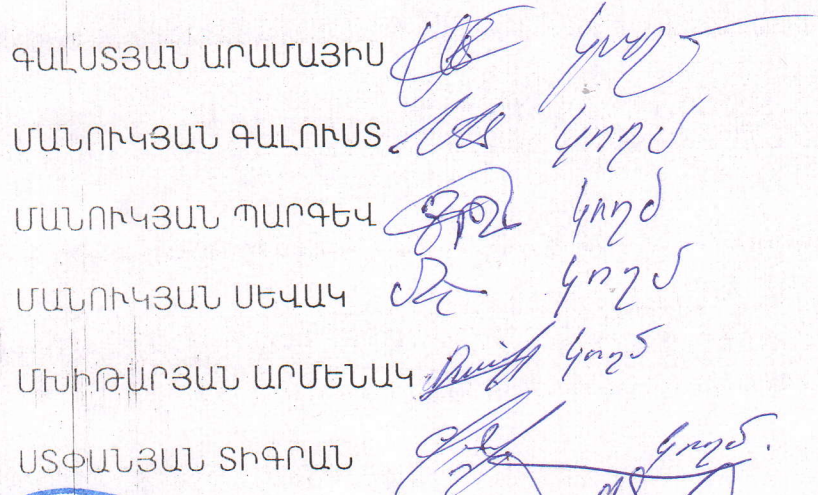 ԳԱԼՍՏՅԱՆ ԱՐԱՄԱՅԻՍ կողմ
ՄԱՆՈՒԿՅԱՆ ԳԱԼՈՒՍՏ կողմ
ՄԱՆՈՒԿՅԱՆ ՊԱՐԳԵՎ կողմ
ՄԱՆՈՒԿՅԱՆ ՍԵՎԱԿ կողմ
ՄԽԻԹԱՐՅԱՆ ԱՐՄԵՆԱԿ կողմ
ՍՏՓԱՆՅԱՆ ՏԻԳՐԱՆ կողմ.